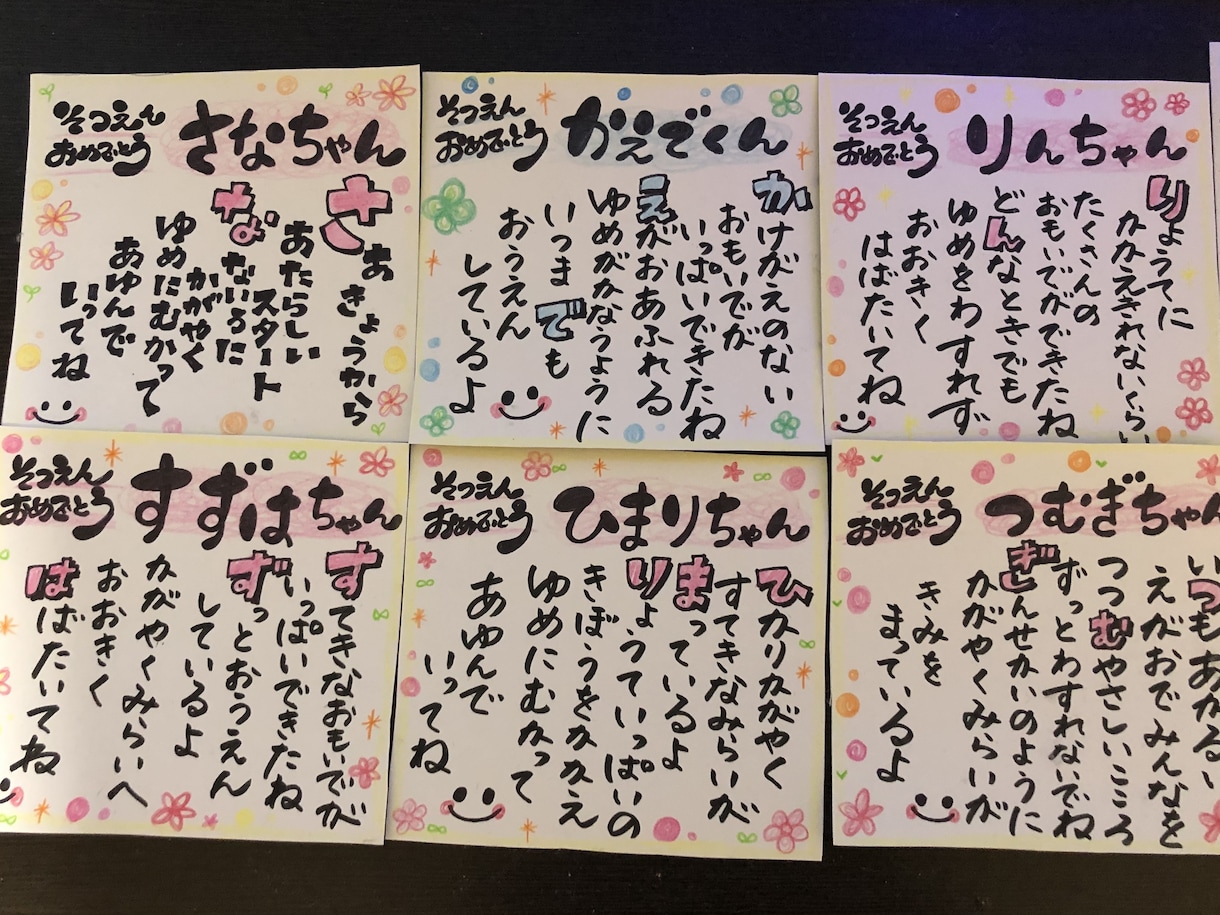 そつえん
おめでとう
さなちゃん
さあきょうから
あたらしい
スタート
なないろに
かがやく
ゆめにむかって
あゆんで
いってね
そつえん
おめでとう
かえでくん
かけがえのない
おもいでが
いっぱいできたね
えがおあふれる
ゆめがかなうように
いつまでも
おうえん
しているよ
そつえん
おめでとう
りんちゃん
りょうてに
かかえきれないくらい
たくさんの
おもいでができたね
どんなときでも
ゆめをわすれず
おおきく
はばたいてね
そつえん
おめでとう
すずはちゃん
すてきなおもいでが
いっぱいできたね
ずっとおうえん
しているよ
かがやくみらいへ
おおきく
はばたいてね
そつえん
おめでとう
ひまりちゃん
ひかりかがやく
すてきなみらいが
まっているよ
りょうていっぱいの
きぼうをかかえ
ゆめにむかって
あゆんで
いってね
そつえん
おめでとう
つむぎちゃん
いつもあかるい
えがおでみんなを
つつむやさしいこころ
ずっとわすれないでね
ぎんせかいのように
かがやくみらいが
きみを
まっているよ